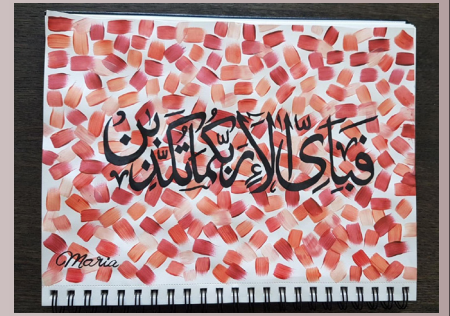 فَبِاَيِّ اٰلَاۤءِ رَبِّكُمَا تُكَذِّبٰنِ
Maria